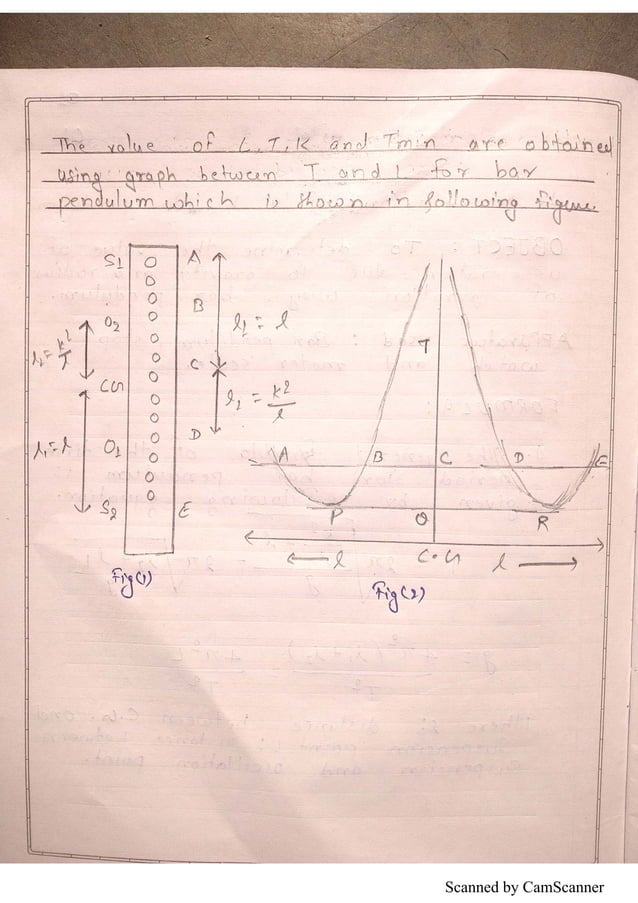 The value of L, T, K and Tmin are obtained
using graph between T and L for bar
pendulum which is shown in following Figure.
S1
O2
CG
O1
S2
l2 = k²/l
l1 = l
A
B
C
D
E
l1 = l
l2 = k²/l
Fig(1)
T
A B C D E
P Q R
← l C.G l →
Fig(2)
Scanned by CamScanner